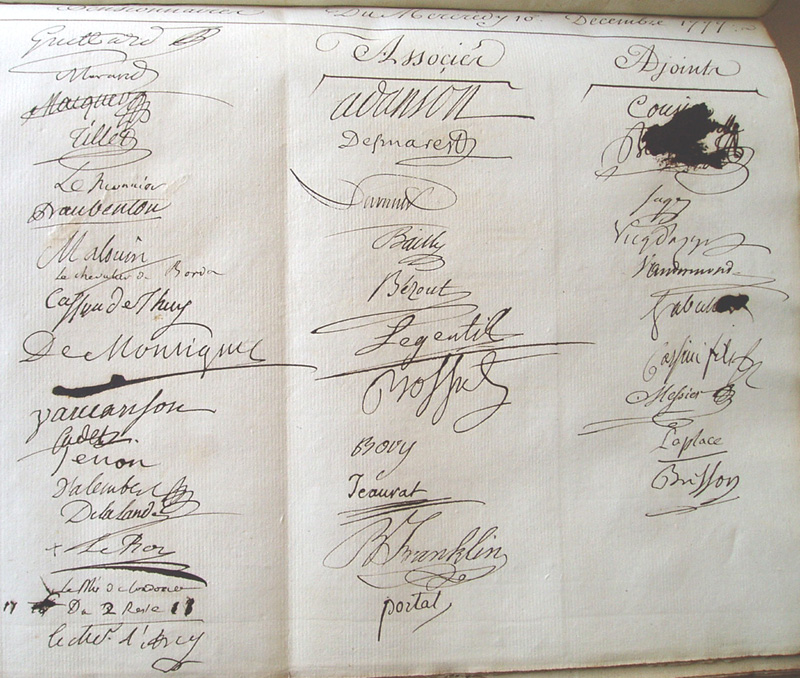 Pensionnaires Du Mercredy 10 Decembre 1777
Guettard
Morand
Macquer
Tillet
Le Monnier
Daubenton
Malouin
Le chevalier de Borda
Cassini de Thury
De Montigny
Vaucanson
Cadet
Tenon
Dalembert
De la Lande
+ Le Roy
Du 2 Reste
le cher. d'Arcy
Associés
adanson
Desmarest
Bailly
Bézout
Legentil
Bossut
Bory
Jeaurat
B Franklin
portal
Adjoints
Cousin
Sage
Vicq dazyr
Vandermonde
Cassini fils
Messier
Laplace
Brisson